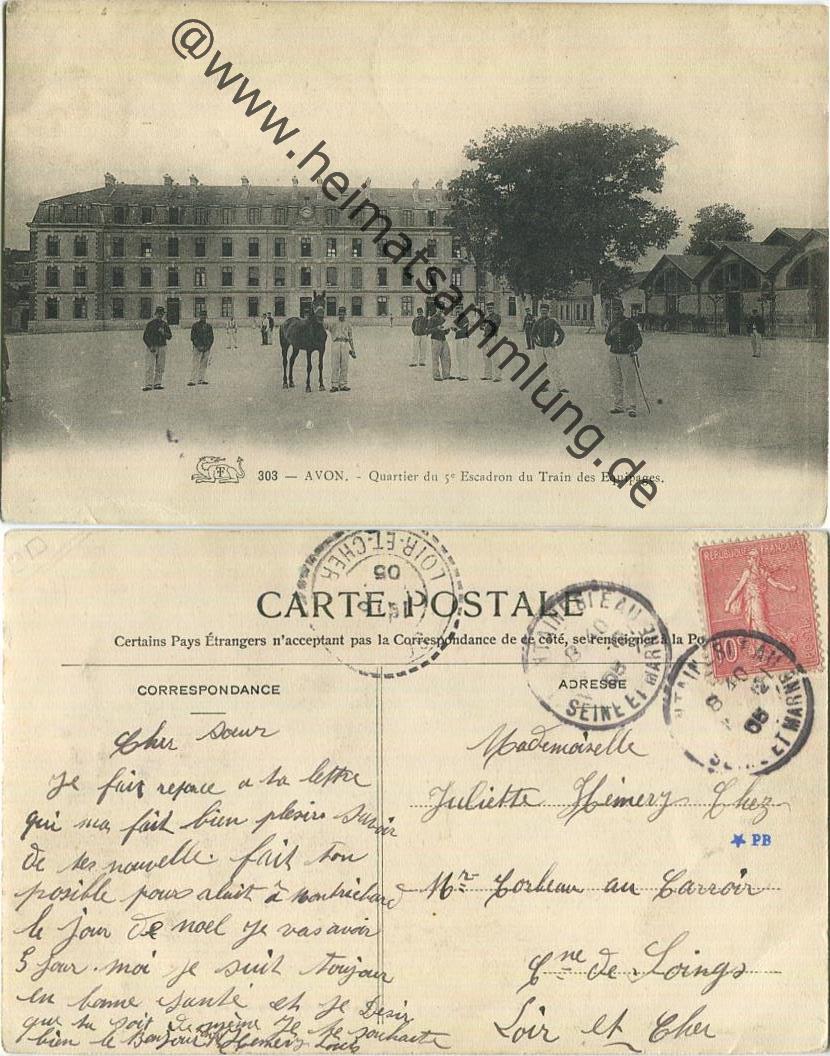 @www.heimatsammlung.de
303 — AVON. - Quartier du 5e Escadron du Train des Equipages.
LOIR-ET-CHER
05
CARTE POSTALE
Certains Pays Étrangers n'acceptant pas la Correspondance de ce côté, se renseigner à la Po
SEINE ET MARNE
05
REPUBLIQUE FRANÇAISE
10
SEINE ET MARNE
05
CORRESPONDANCE
Cher sœur
Je fait reponce a ta lettre
qui ma fait bien plesire savoir
de tes nouvelle. fait ton
posible pours aluit à montrichard
le jour de noel je vas avoir
5 jour. moi je suit toujour
en bonne santé et je Désir
que tu soit de même Je te souhaite
bien le Bonjour Hémery Louis
ADRESSE
Mademoiselle
Juliette Hémery Chez
PB
Mr Corbeau au Carroir
Cne de Loings
Loir et Cher